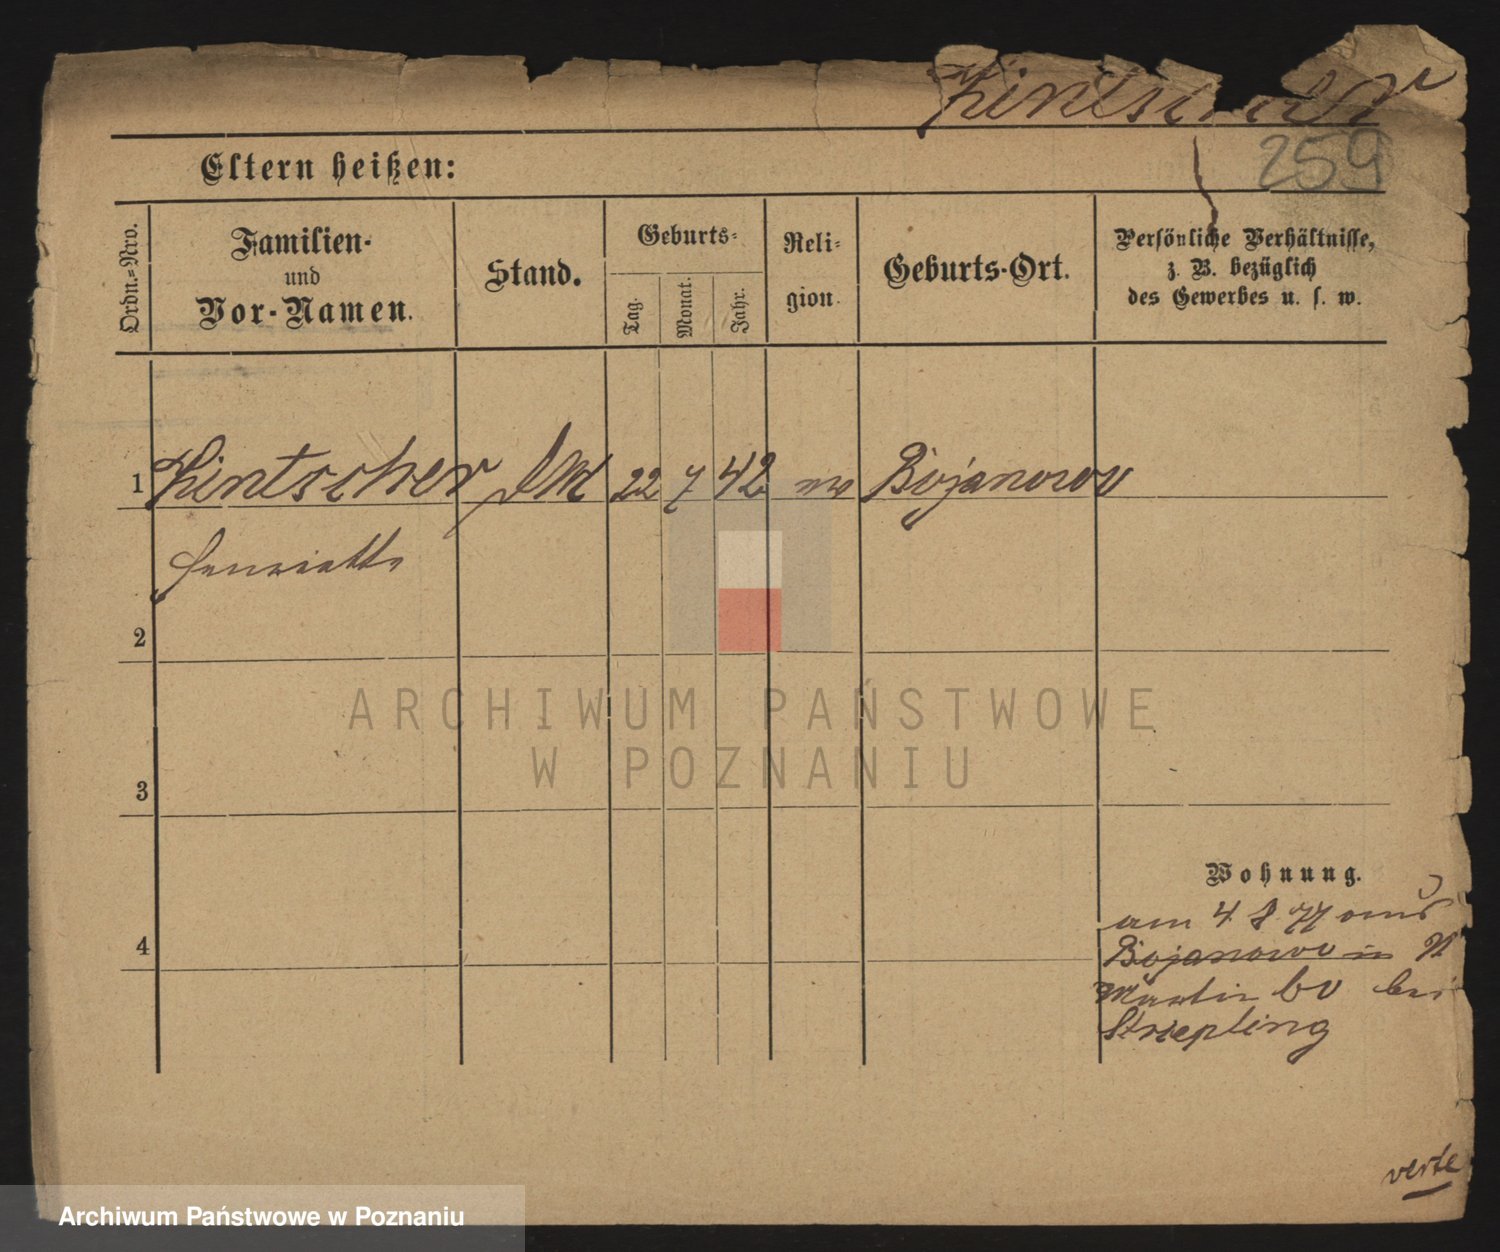 Kintscher
259
Eltern heißen:
Ordn.=Nro.
Familien-
und
Vor-Namen.
Stand.
Geburts=
Tag.
Monat.
Jahr.
Reli=
gion.
Geburts-Ort.
Persönliche Verhältnisse,
z. B. bezüglich
des Gewerbes u. s. w.
1 Kintscher 22 7 42 ev Bojanowo
Henriette
2
ARCHIWUM PAŃSTWOWE
W POZNANIU
3
Wohnung.
am 4 8 77 aus
4
Bojanowo in
Martin 60 bei
Striepling
verte
Archiwum Państwowe w Poznaniu